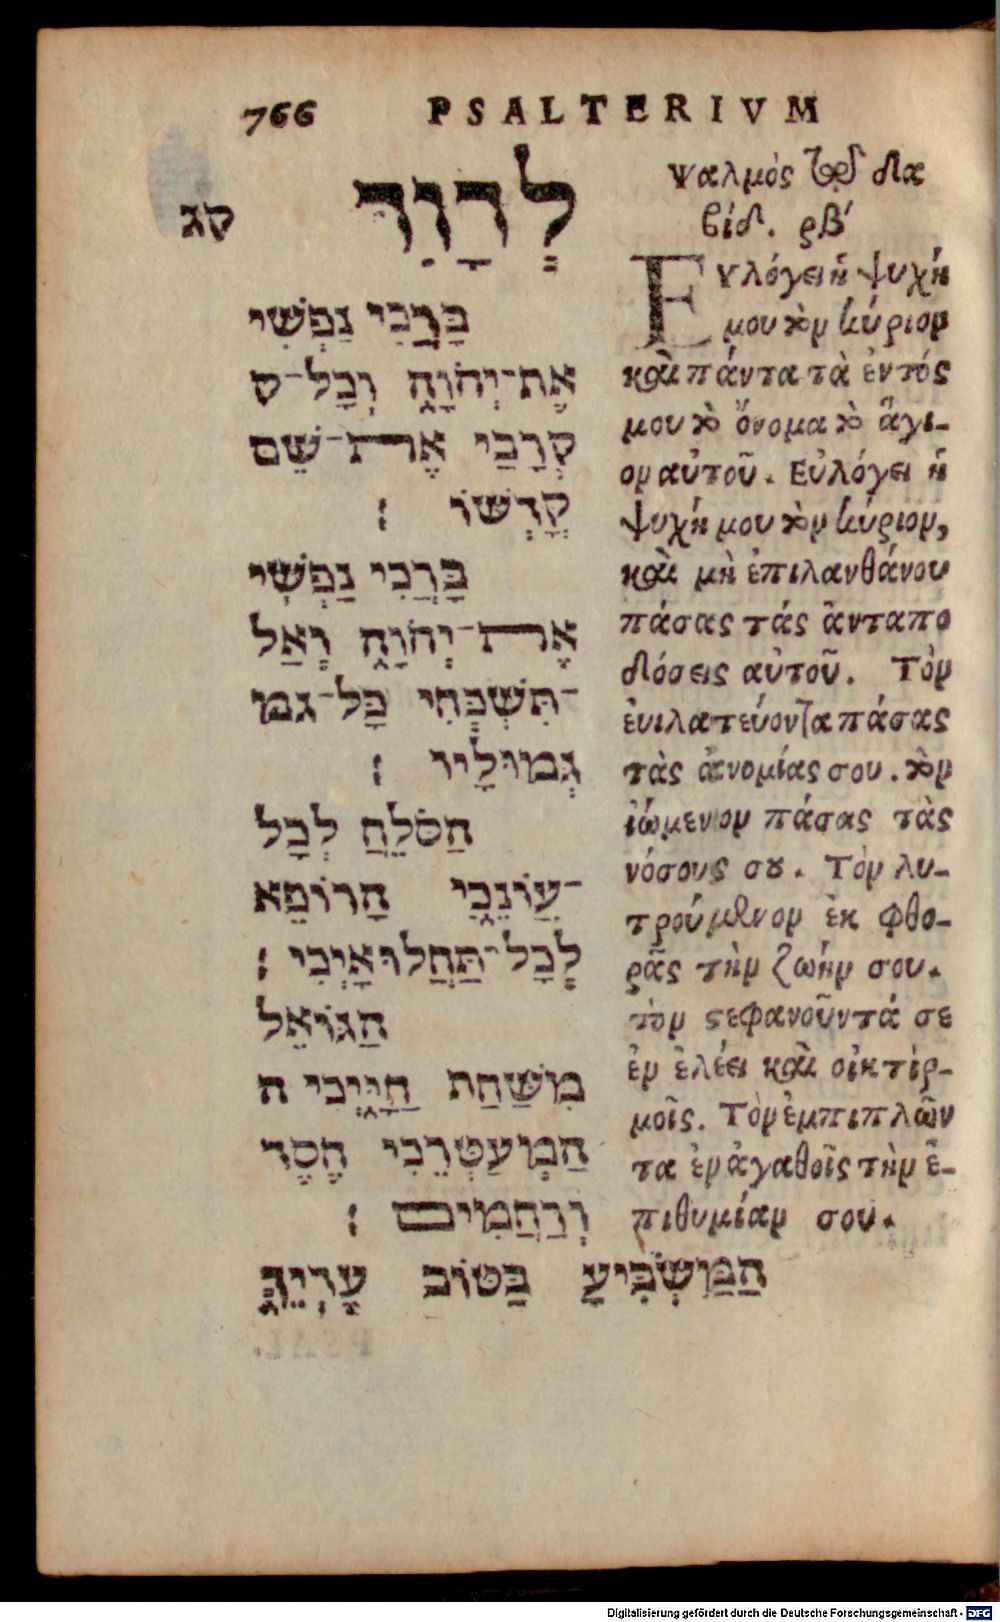 766 PSALTERIVM
קג
לְדָוִד
בָּרֲכִי נַפְשִׁי
אֶת־יְהֹוָה וְכָל־ק
קְרָבַי אֶת־שֵׁם
קָדְשׁוֹ ׃
בָּרֲכִי נַפְשִׁי
אֶת־יְהֹוָה וְאַל
־תִּשְׁכְּחִי כָּל־גמ
גְּמוּלָיו ׃
הַסֹּלֵחַ לְכָל
־עֲוֹנֵכִי הָרוֹפֵא
לְכָל־תַּחֲלוּאָיְכִי ׃
הַגּוֹאֵל
מִשַּׁחַת חַיָּיְכִי ה
הַמְעַטְּרֵכִי חֶסֶד
וְרַחֲמִים ׃
הַמַּשְׂבִּיעַ בַּטּוֹב עֶדְיֵךְ
Ψαλμὸς τῷ δα
βίδ. ρβʹ
Εὐλόγει ἡ ψυχή
μου τὸν κύριον
καὶ πάντα τὰ ἐντός
μου τὸ ὄνομα τὸ ἅγι-
ον αὐτοῦ. Εὐλόγει ἡ
ψυχή μου τὸν κύριον,
καὶ μὴ ἐπιλανθάνου
πάσας τάς ἀνταπο
δόσεις αὐτοῦ. Τὸν
ἐυιλατεύοντα πάσας
τὰς ἀνομίας σου. τὸν
ἰώμενον πάσας τὰς
νόσους σου. Τὸν λυ-
τρούμενον ἐκ φθο-
ρᾶς τὴν ζωήν σου.
τὸν στεφανοῦντά σε
ἐν ἐλέει καὶ οἰκτίρ-
μοῖς. Τὸν ἐμπιπλῶν
τα ἐν ἀγαθοῖς τὴν ἐ-
πιθυμίαν σου.
Digitalisierung gefördert durch die Deutsche Forschungsgemeinschaft - DFG